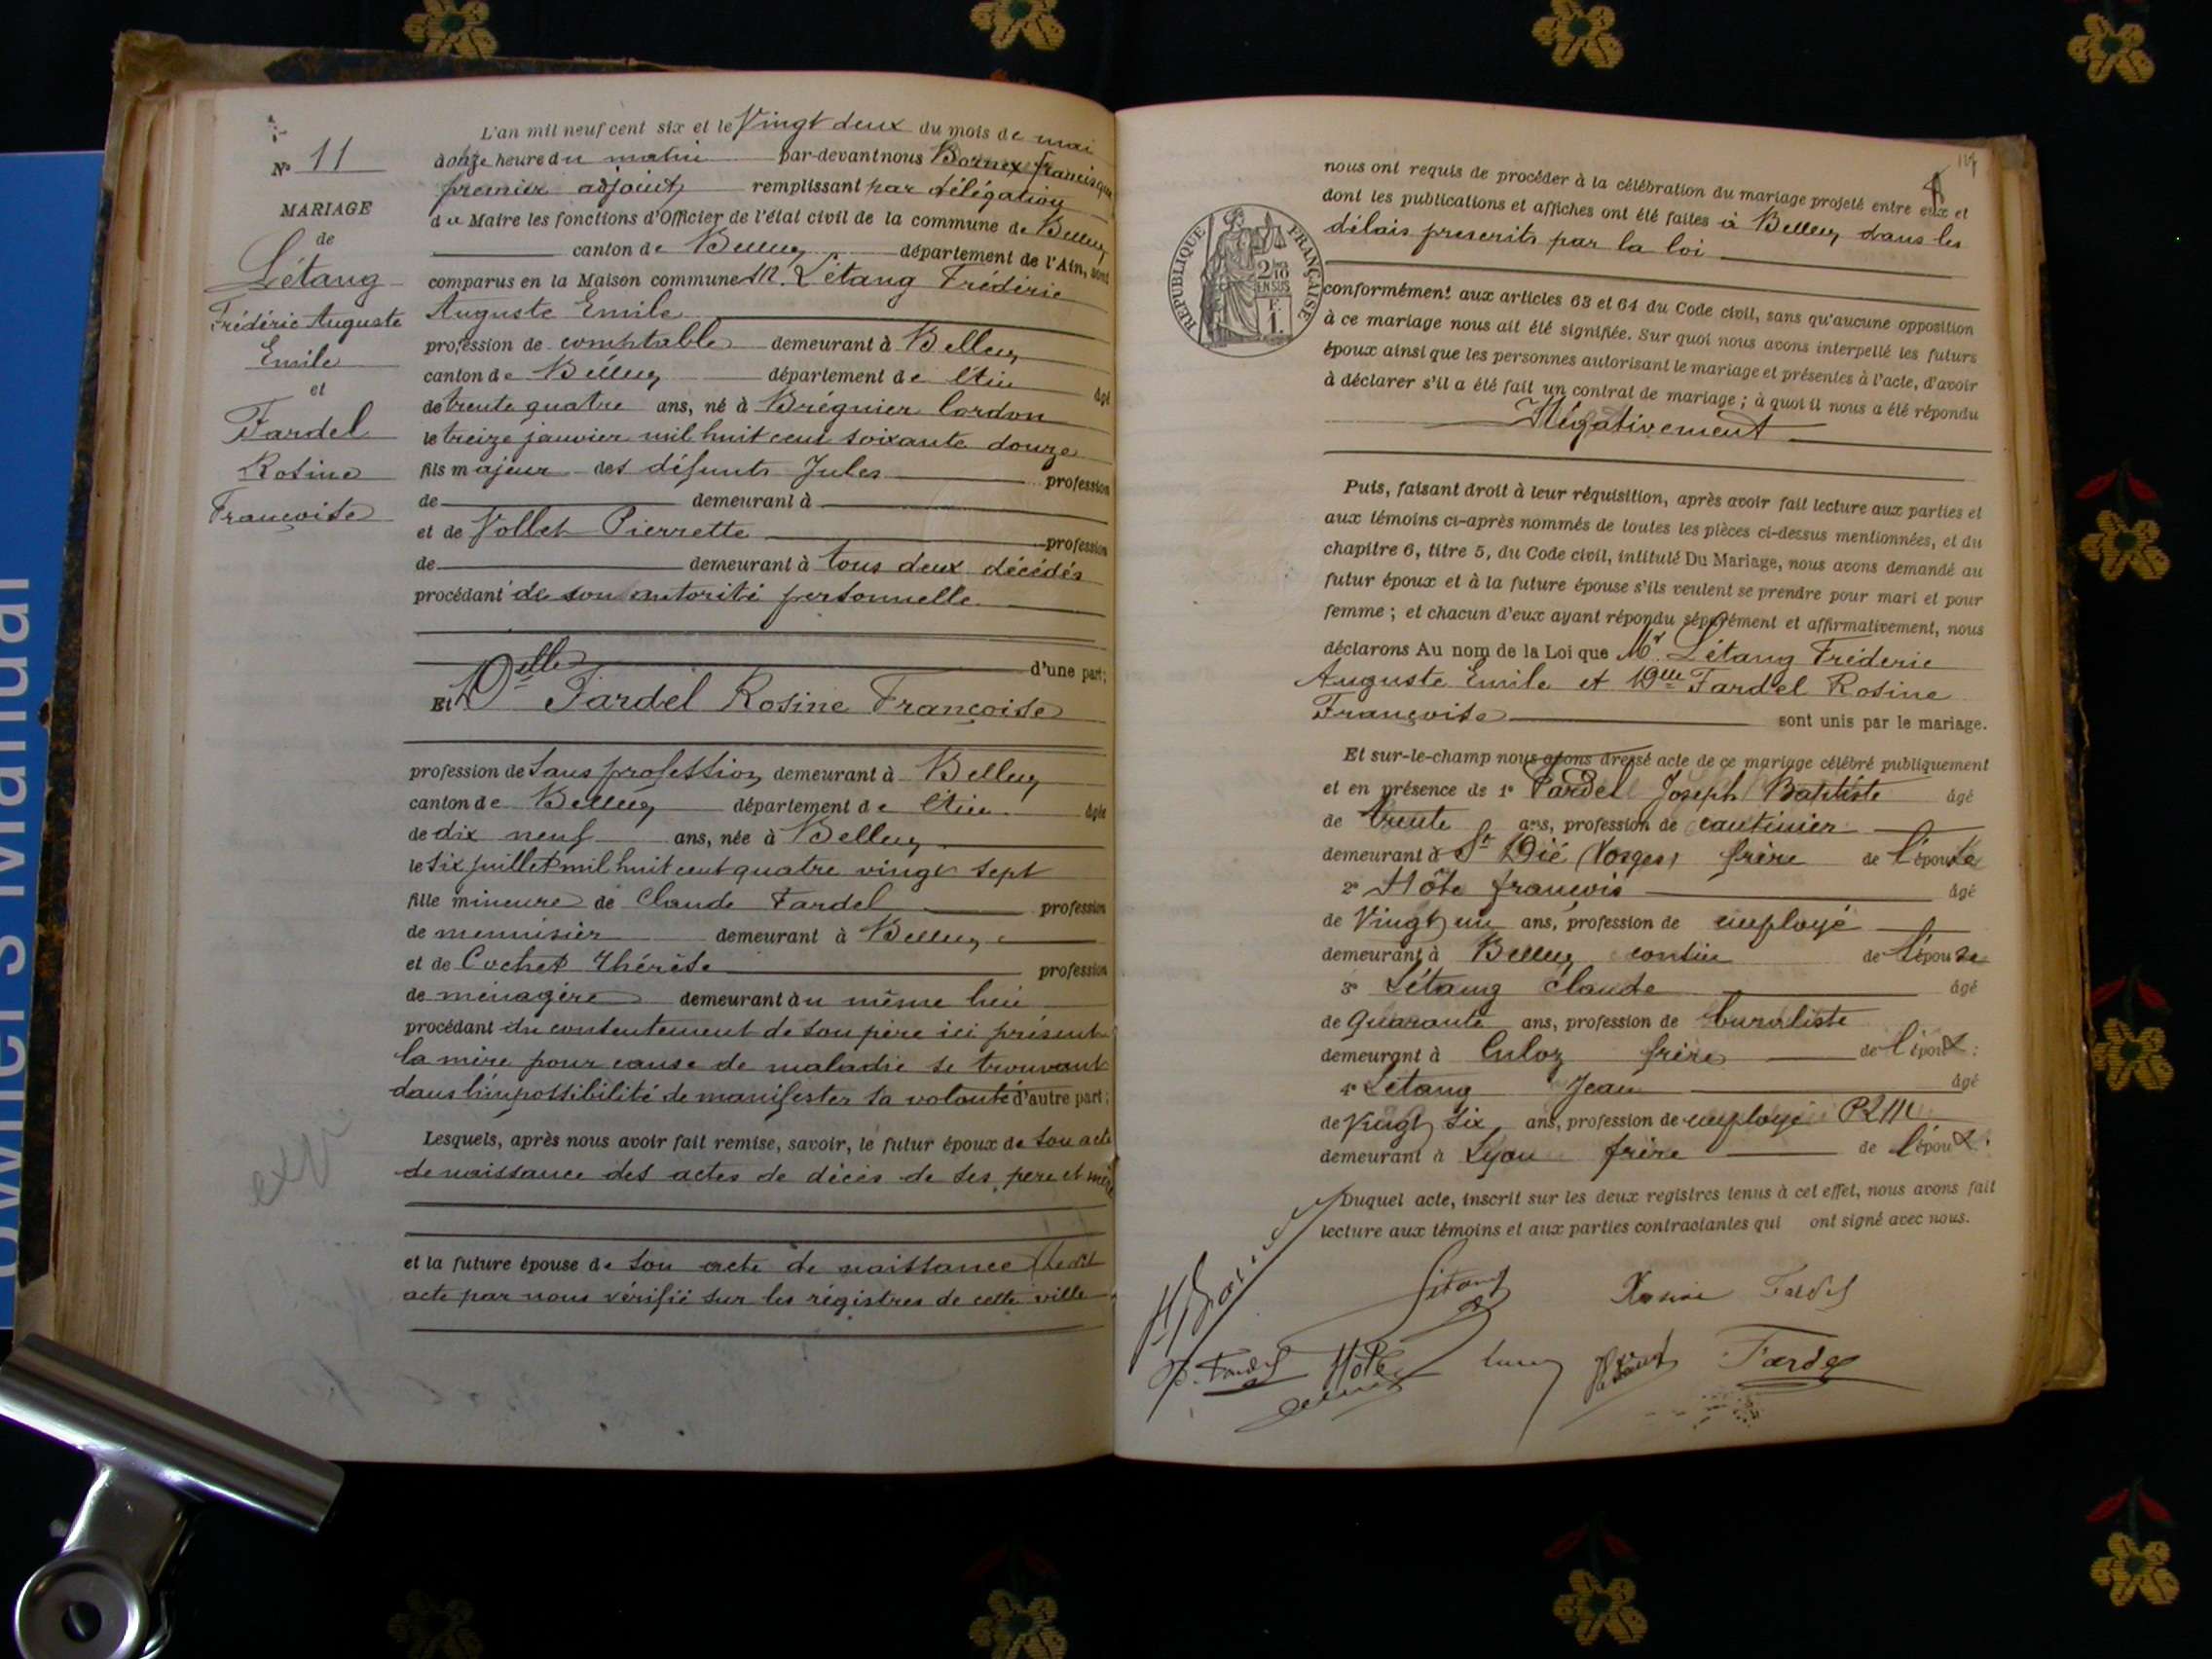 Owners Manual
N° 11
MARIAGE
de
Létang
Frédéric Auguste
Emile
et
Fardel
Rosine
Francoise
L'an mil neuf cent six et le Vingt deux du mois de mai
à onze heure du matin par-devant nous Bornex francisque
premier adjoint remplissant par délégation
du Maire les fonctions d'Officier de l'état civil de la commune de Belley
canton de Belley département de l'Ain, sont
comparus en la Maison commune M. Létang Frédéric
Auguste Emile
profession de comptable demeurant à Belley
canton de Belley département de l'Ain âgé
de trente quatre ans, né à Brégnier Cordon
le treize janvier mil huit cent soixante douze
fils majeur des défunts Jules profession
de demeurant à
et de Vollet Pierrette profession
de demeurant à tous deux décédés
procédant de son autorité personnelle
d'une part;
Et Delle Fardel Rosine Françoise
profession de Sans profession demeurant à Belley
canton de Belley département de l'Ain âgée
de dix neuf ans, née à Belley
le six juillet mil huit cent quatre vingt sept
fille mineure de Claude Fardel profession
de menuisier demeurant à Belley
et de Cochet Thérèse profession
de ménagère demeurant au même lieu
procédant du consentement de son père ici présent
la mère pour cause de maladie se trouvant
dans l'impossibilité de manifester sa volonté d'autre part;
Lesquels, après nous avoir fait remise, savoir, le futur époux de son acte
de naissance des actes de décès de ses père et mère
et la future épouse de son acte de naissance ledit
acte par nous vérifié sur les régistres de cette ville
nous ont requis de procéder à la célébration du mariage projeté entre eux et
dont les publications et affiches ont été faites à Belley dans les
délais prescrits par la loi
RÉPUBLIQUE FRANÇAISE
2/10
EN SUS
F.
1.
conformément aux articles 63 et 64 du Code civil, sans qu'aucune opposition
à ce mariage nous ait été signifiée. Sur quoi nous avons interpellé les futurs
époux ainsi que les personnes autorisant le mariage et présentes à l'acte, d'avoir
à déclarer s'il a été fait un contrat de mariage; à quoi il nous a été répondu
Négativement
Puis, faisant droit à leur réquisition, après avoir fait lecture aux parties et
aux témoins ci-après nommés de toutes les pièces ci-dessus mentionnées, et du
chapitre 6, titre 5, du Code civil, intitulé Du Mariage, nous avons demandé au
futur époux et à la future épouse s'ils veulent se prendre pour mari et pour
femme; et chacun d'eux ayant répondu séparément et affirmativement, nous
déclarons Au nom de la Loi que Mr Létang Fréderic
Auguste Emile et Delle Fardel Rosine
Françoise sont unis par le mariage.
Et sur-le-champ nous avons dressé acte de ce mariage célébré publiquement
et en présence de 1° Fardel Joseph Baptiste âgé
de trente ans, profession de cantinier
demeurant à St Dié (Vosges) frère de l'épouse
2° Hôte francois âgé
de Vingt un ans, profession de employé
demeurant à Belley cousin de l'épouse
3° Létang Claude âgé
de Quarante ans, profession de buraliste
demeurant à Culoz frère de l'époux:
4° Létang Jean âgé
de Vingt six ans, profession de employé PLM
demeurant à Lyon frère de l'époux:
Duquel acte, inscrit sur les deux registres tenus à cet effet, nous avons fait
lecture aux témoins et aux parties contractantes qui ont signé avec nous.
Létang Rosine Fardel
Fardel Hôte Fardel